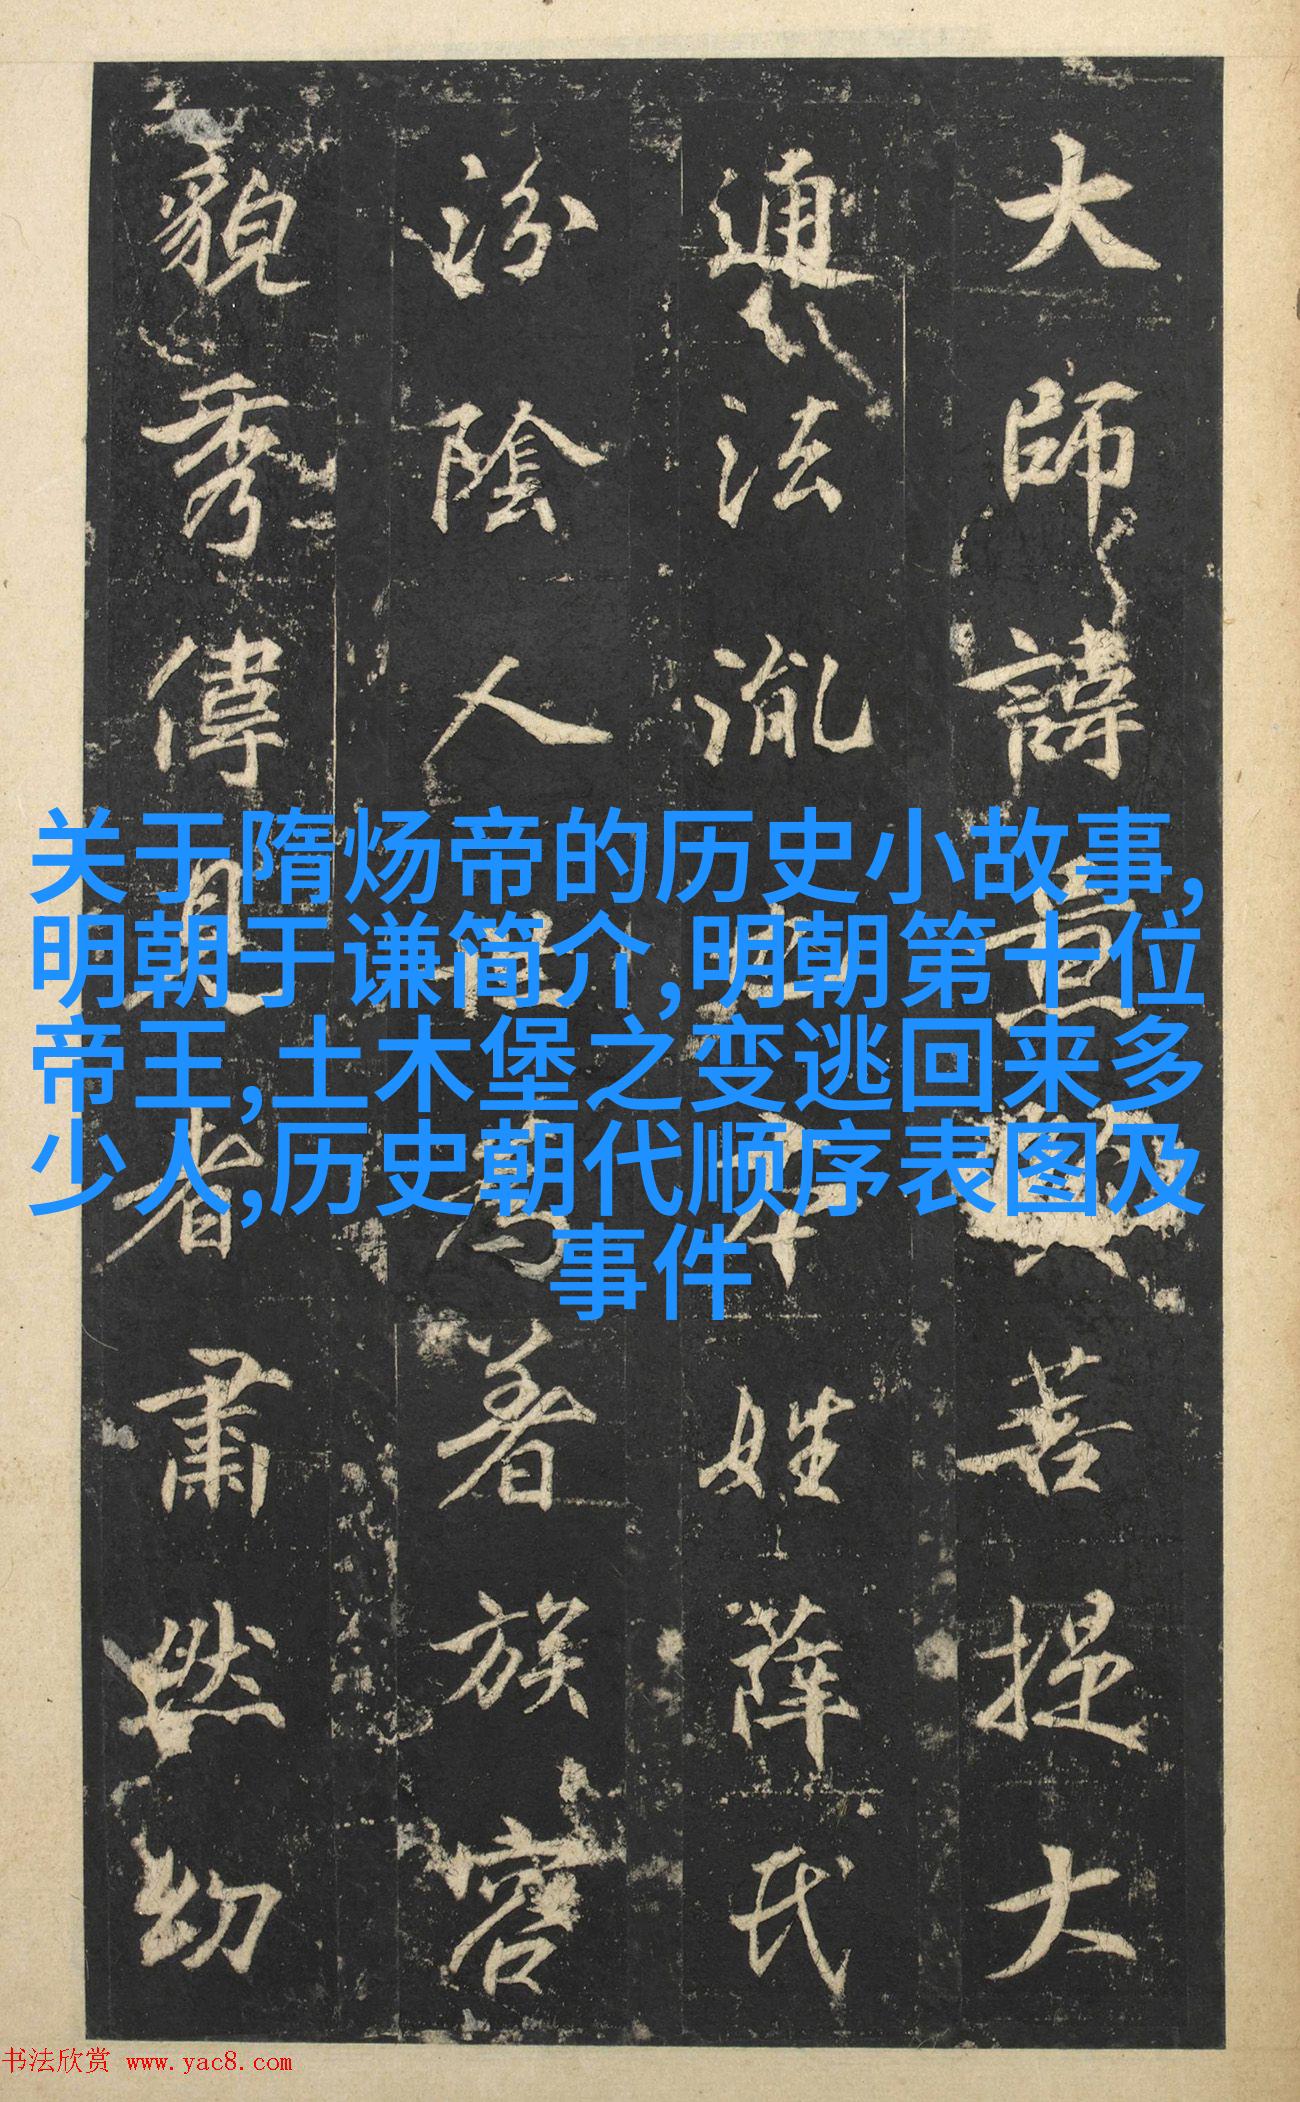 大師諱菩提大
通法胤本姓薛氏
汾陰人為著族容
貌秀偉見者肅然幼
关于隋炀帝的历史小故事,
明朝于谦简介,明朝第十位
帝王,土木堡之变逃回来多
少人,历史朝代顺序表图及
事件
书法欣赏 www.yac8.com